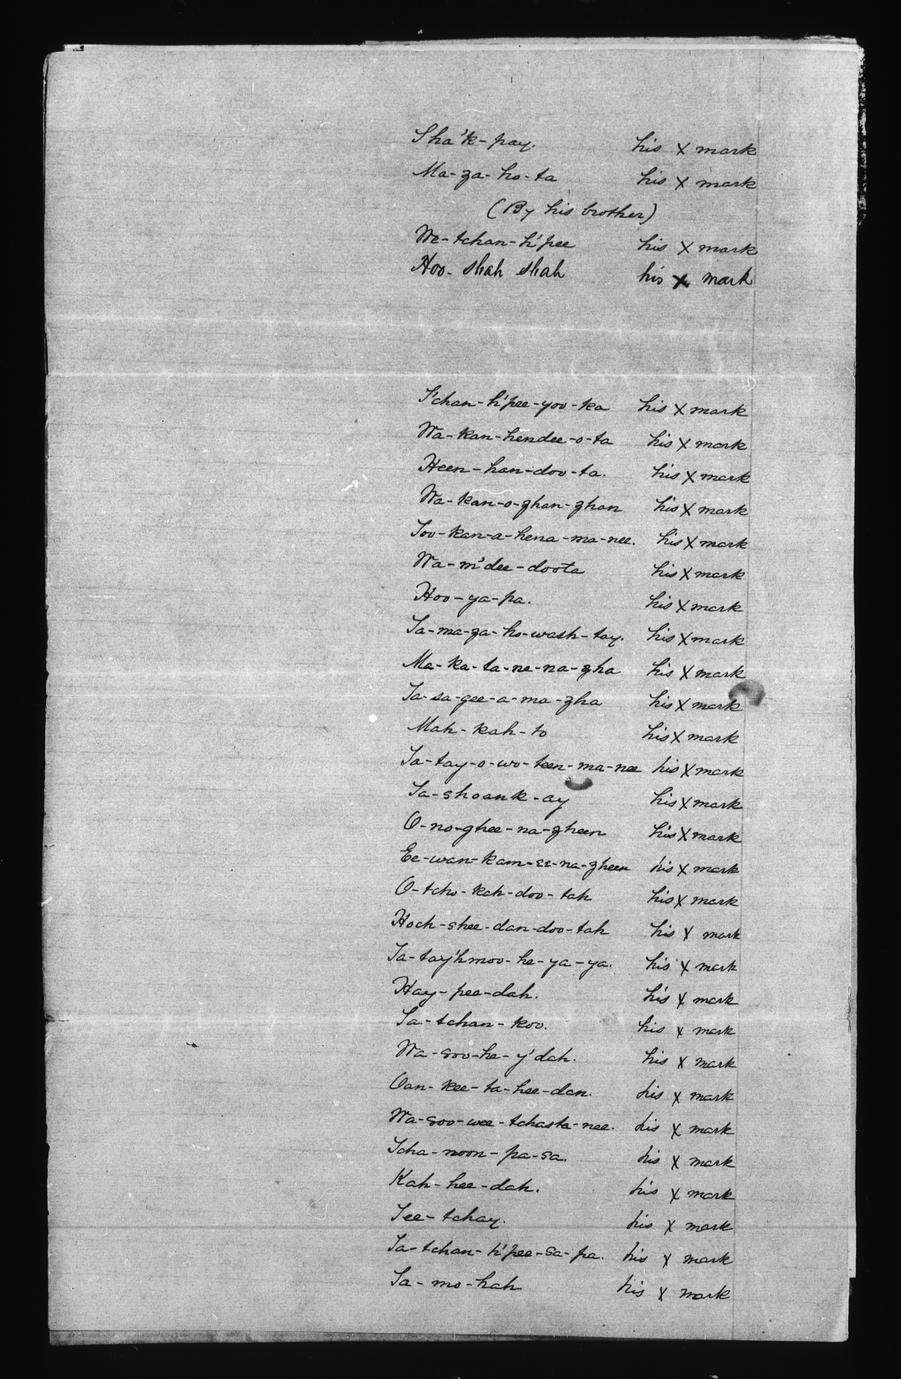 Sha'k-pay. his X mark
Ma-za-ho-ta his X mark
(By his brother)
We-tchan-h'pee his X mark
Hoo-shah shah his X mark
T'chan-h'pee-yoo-ka his X mark
Wa-kan-hendee-o-ta his X mark
Heen-han-doo-ta. his X mark
Wa-kan-o-zhan-zhan his X mark
Too-kan-a-hena-ma-nee. his X mark
Wa-m'dee-doota his X mark
Hoo-ya-pa. his X mark
Ta-ma-za-ho-wash-tay. his X mark
Ma-ka-ta-ne-na-zha his X mark
Ta-sa-gee-a-ma-zha his X mark
Mah-kah-to his X mark
Ta-tay-o-wo-teen-ma-nee his X mark
Ta-shoank-ay his X mark
O-no-ghee-na-gheen his X mark
Ee-wan-kam-ee-na-gheen his X mark
O-tcho-kah-doo-tah his X mark
Hoch-shee-dan-doo-tah his X mark
Ta-tay'hmoo-he-ya-ya. his X mark
Hay-pee-dah. his X mark
Ta-tchan-koo. his X mark
Wa-soo-he-y'dah. his X mark
Oan-kee-ta-hee-dan. his X mark
Wa-soo-wee-tchasta-nee. his X mark
Tcha-noon-pa-sa. his X mark
Kah-hee-dah. his X mark
Tee-tchay. his X mark
Ta-tchan-h'pee-sa-pa. his X mark
Ta-mo-hah his X mark